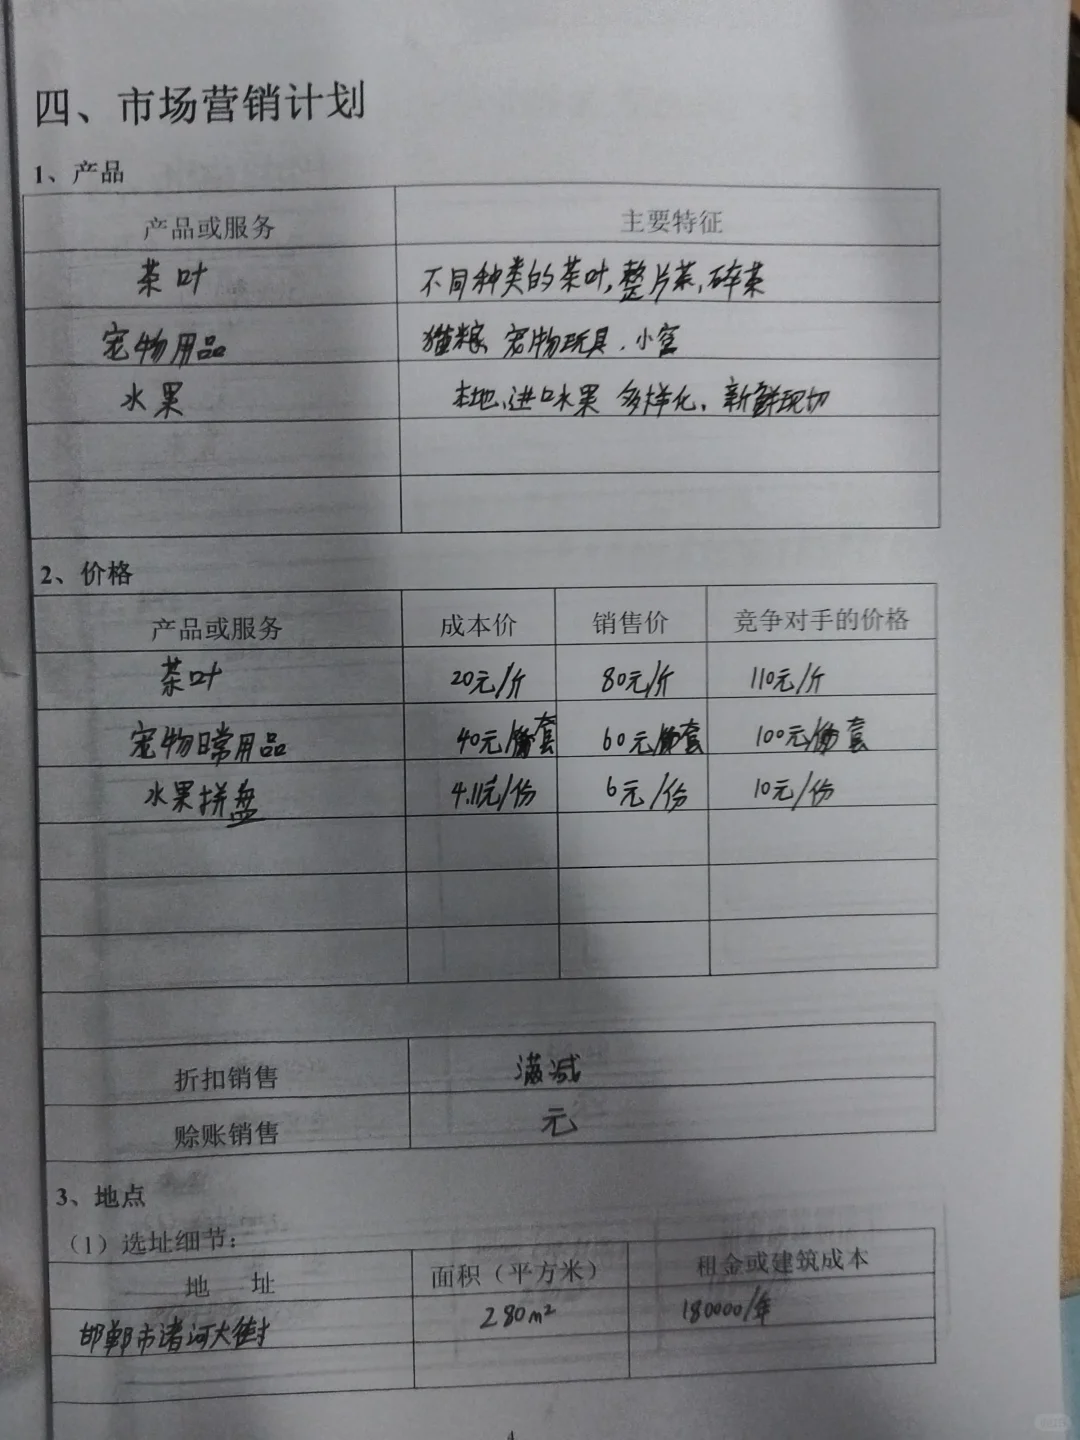 四、市场营销计划
1、产品
产品或服务 主要特征
茶叶 不同种类的茶叶,整片茶,碎茶
宠物用品 猫粮、宠物玩具.小窝
水果 本地、进口水果 多样化、新鲜现切
2、价格
产品或服务 成本价 销售价 竞争对手的价格
茶叶 20元/斤 80元/斤 110元/斤
宠物日常用品 40元/套 60元/套 100元/套
水果拼盘 4.11元/份 6元/份 10元/份
折扣销售 满减
赊账销售 元
3、地点
（1）选址细节：
地 址 面积（平方米） 租金或建筑成本
邯郸市渚河大街 280m² 180000/年
4